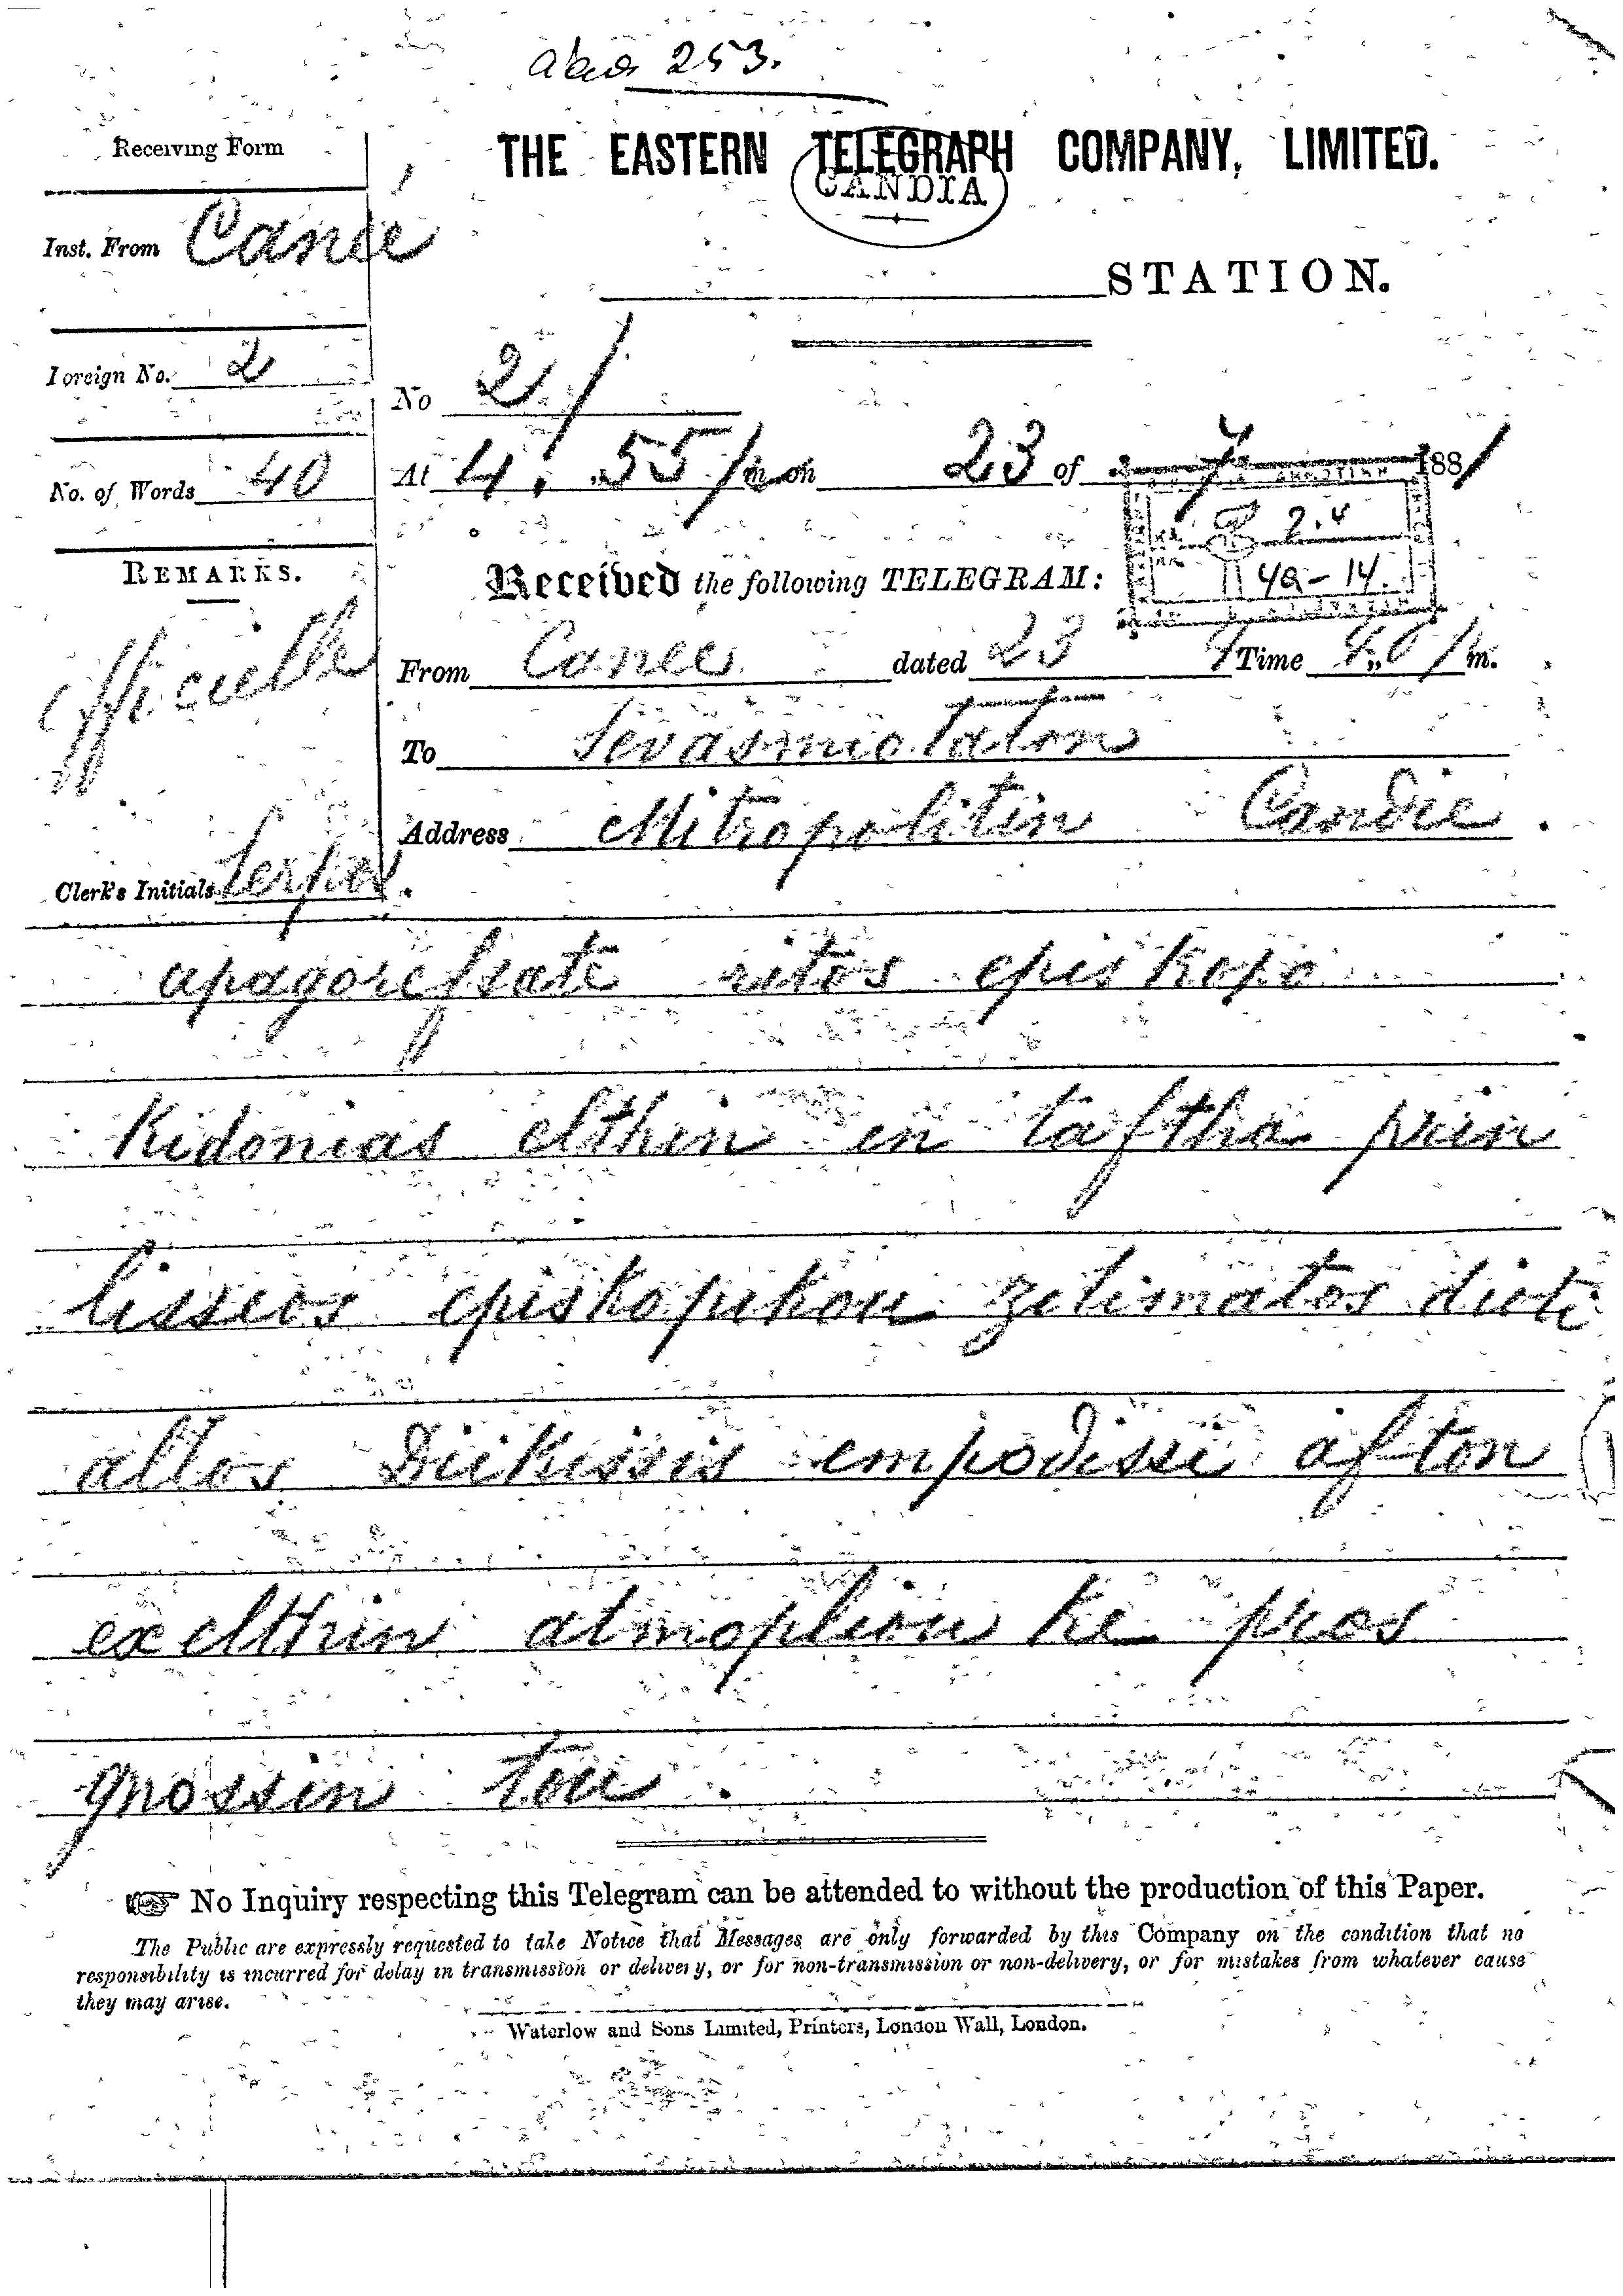 253.
Receiving Form
THE EASTERN TELEGRAPH COMPANY, LIMITED.
CANDIA
Inst. From Canée
STATION.
Foreign No. 2
No 2/
No. of Words 40
At 4. 55/m on 23 of 7 1881
REMARKS.
2.4
49-14.
Received the following TELEGRAM:
officielle
From Canee dated 23 7 Time m.
To Sevasmiotaton
Address Mitropolitin Candie.
Clerk's Initials
apagorefsate ritos episkopo
Kidonias elthin en taftha prin
lisseos episkopikou zitimatos dioti
allos Diikissis empodissi afton
exelthin atmopliou ke pros
gnossin tou.
No Inquiry respecting this Telegram can be attended to without the production of this Paper.
The Public are expressly requested to take Notice that Messages are only forwarded by this Company on the condition that no
responsibility is incurred for delay in transmission or delivery, or for non-transmission or non-delivery, or for mistakes from whatever cause
they may arise.
Waterlow and Sons Limited, Printers, London Wall, London.